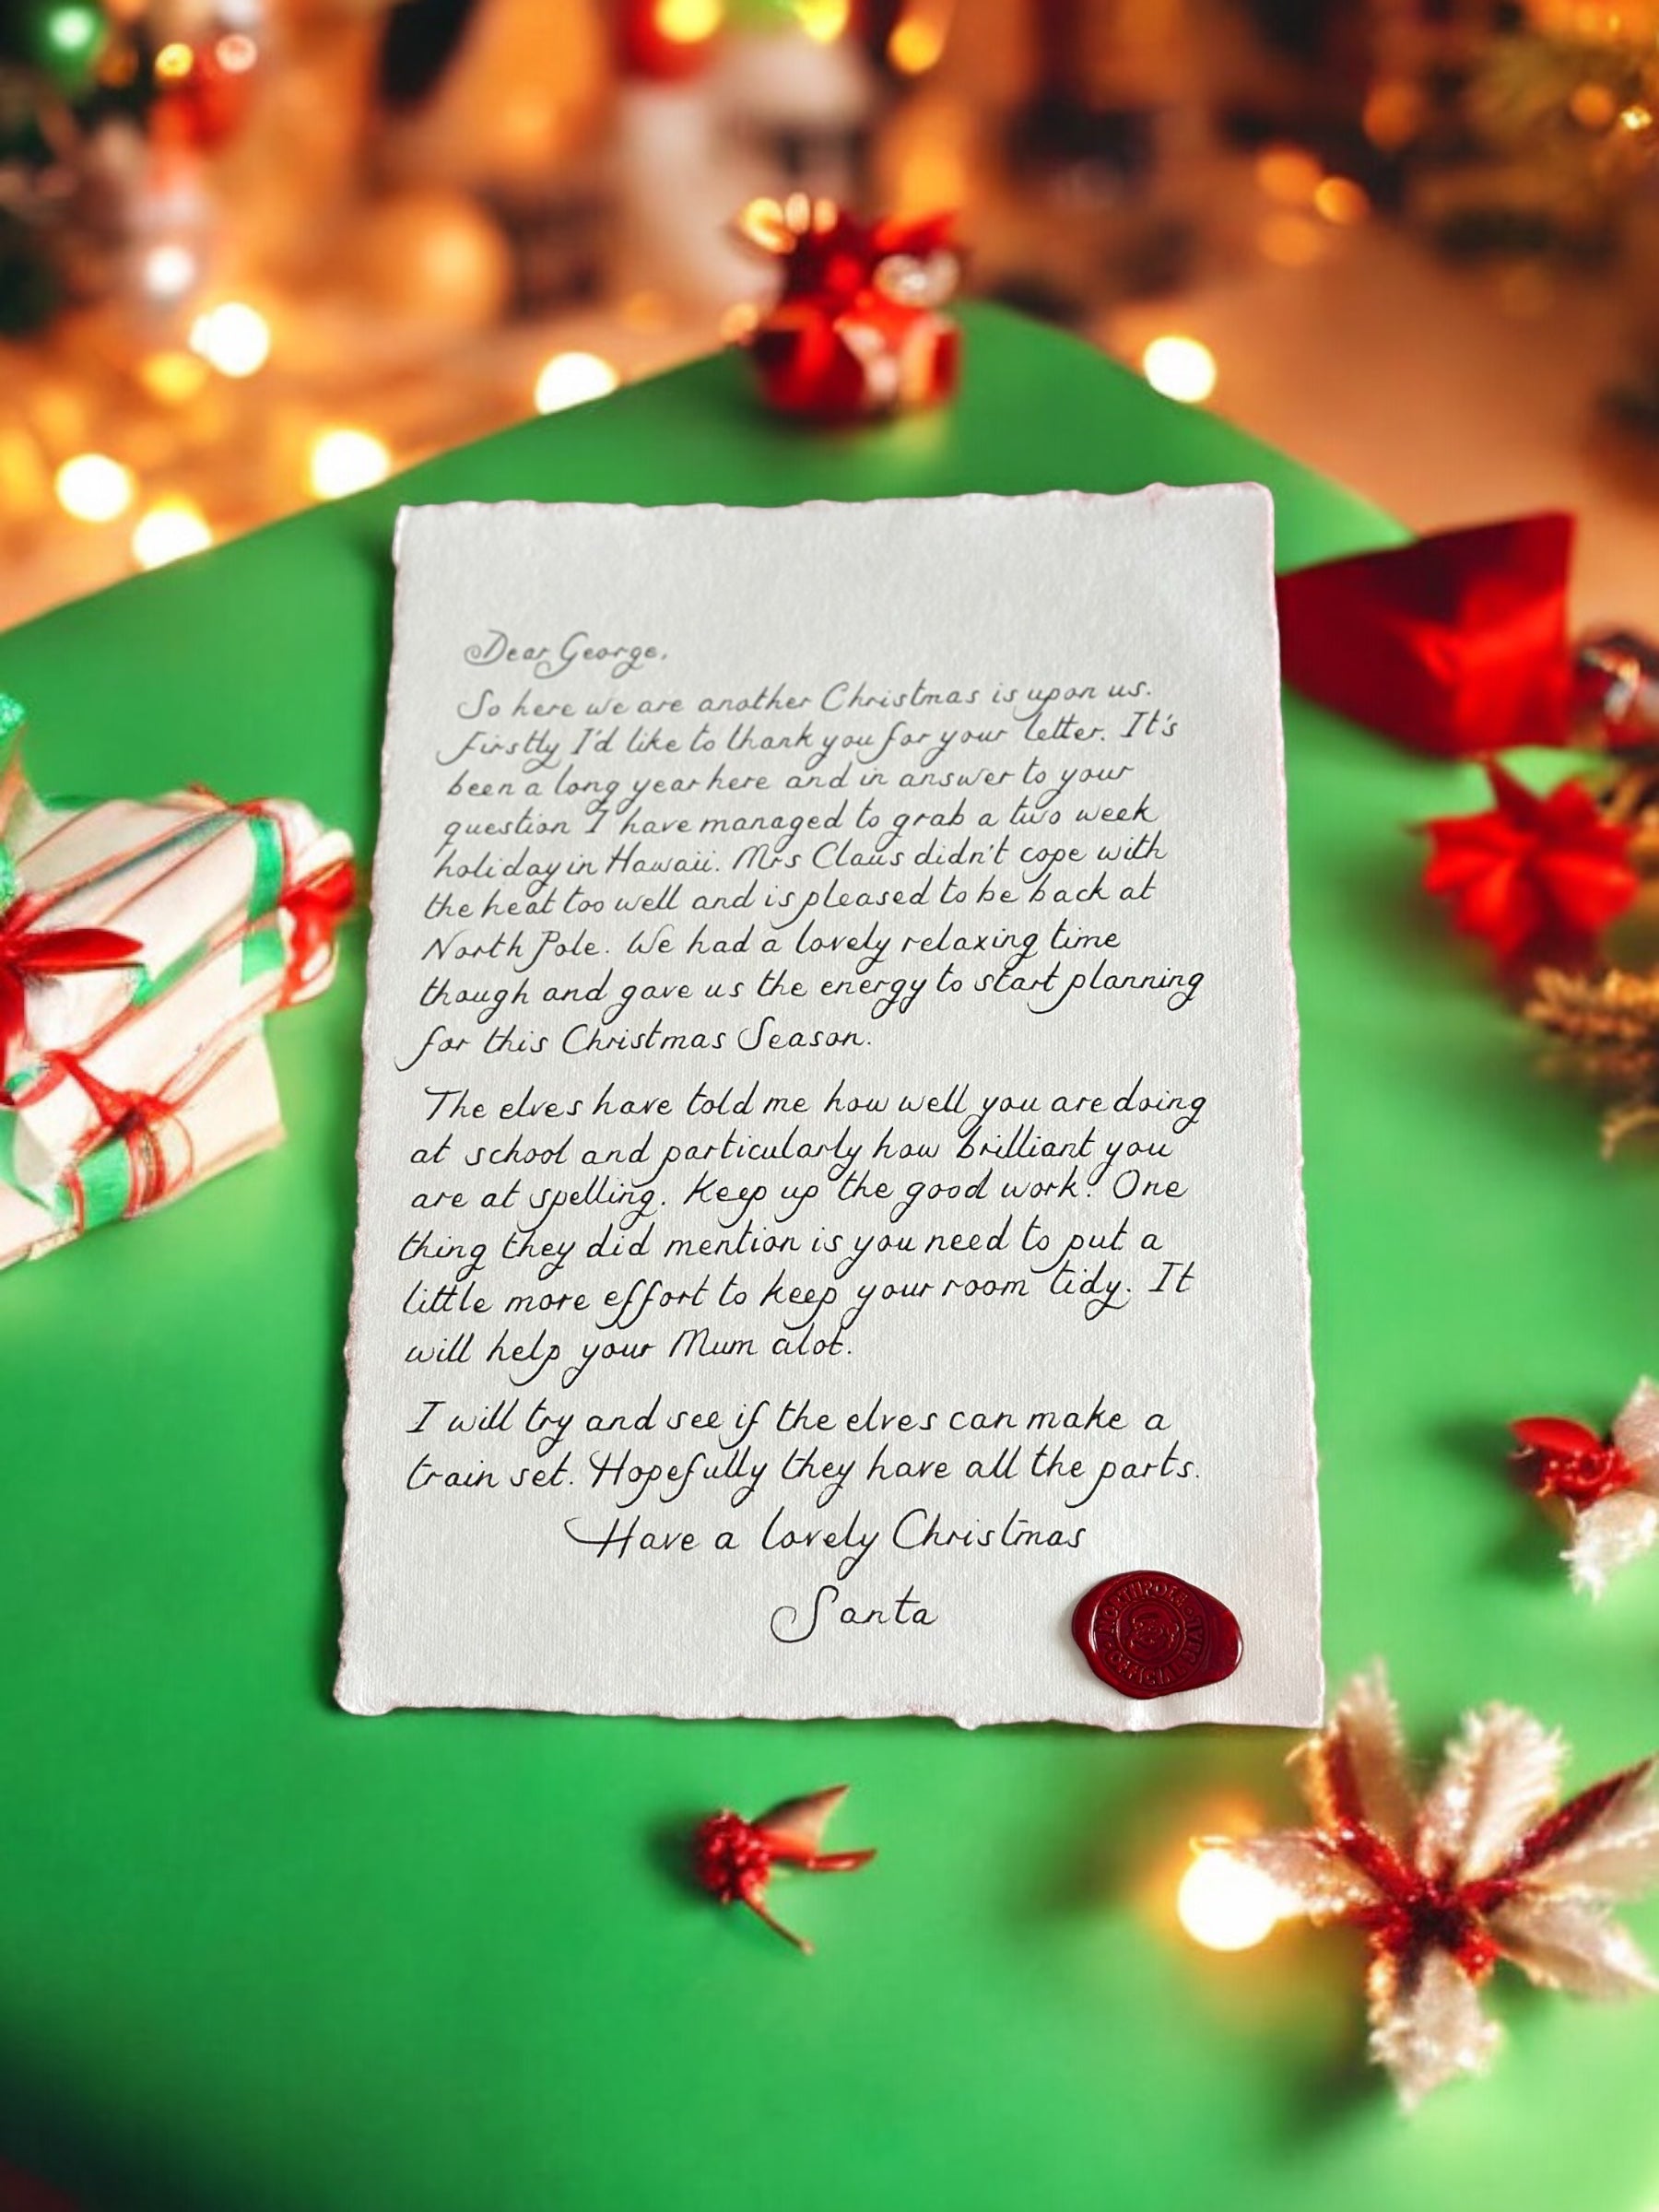 Dear George,
So here we are another Christmas is upon us.
Firstly I'd like to thank you for your letter. It's
been a long year here and in answer to your
question I have managed to grab a two week
holiday in Hawaii. Mrs Claus didn't cope with
the heat too well and is pleased to be back at
North Pole. We had a lovely relaxing time
though and gave us the energy to start planning
for this Christmas Season.
The elves have told me how well you are doing
at school and particularly how brilliant you
are at spelling. Keep up the good work! One
thing they did mention is you need to put a
little more effort to keep your room tidy. It
will help your Mum alot.
I will try and see if the elves can make a
train set. Hopefully they have all the parts.
Have a lovely Christmas
Santa
NORTH POLE
OFFICIAL SEAL